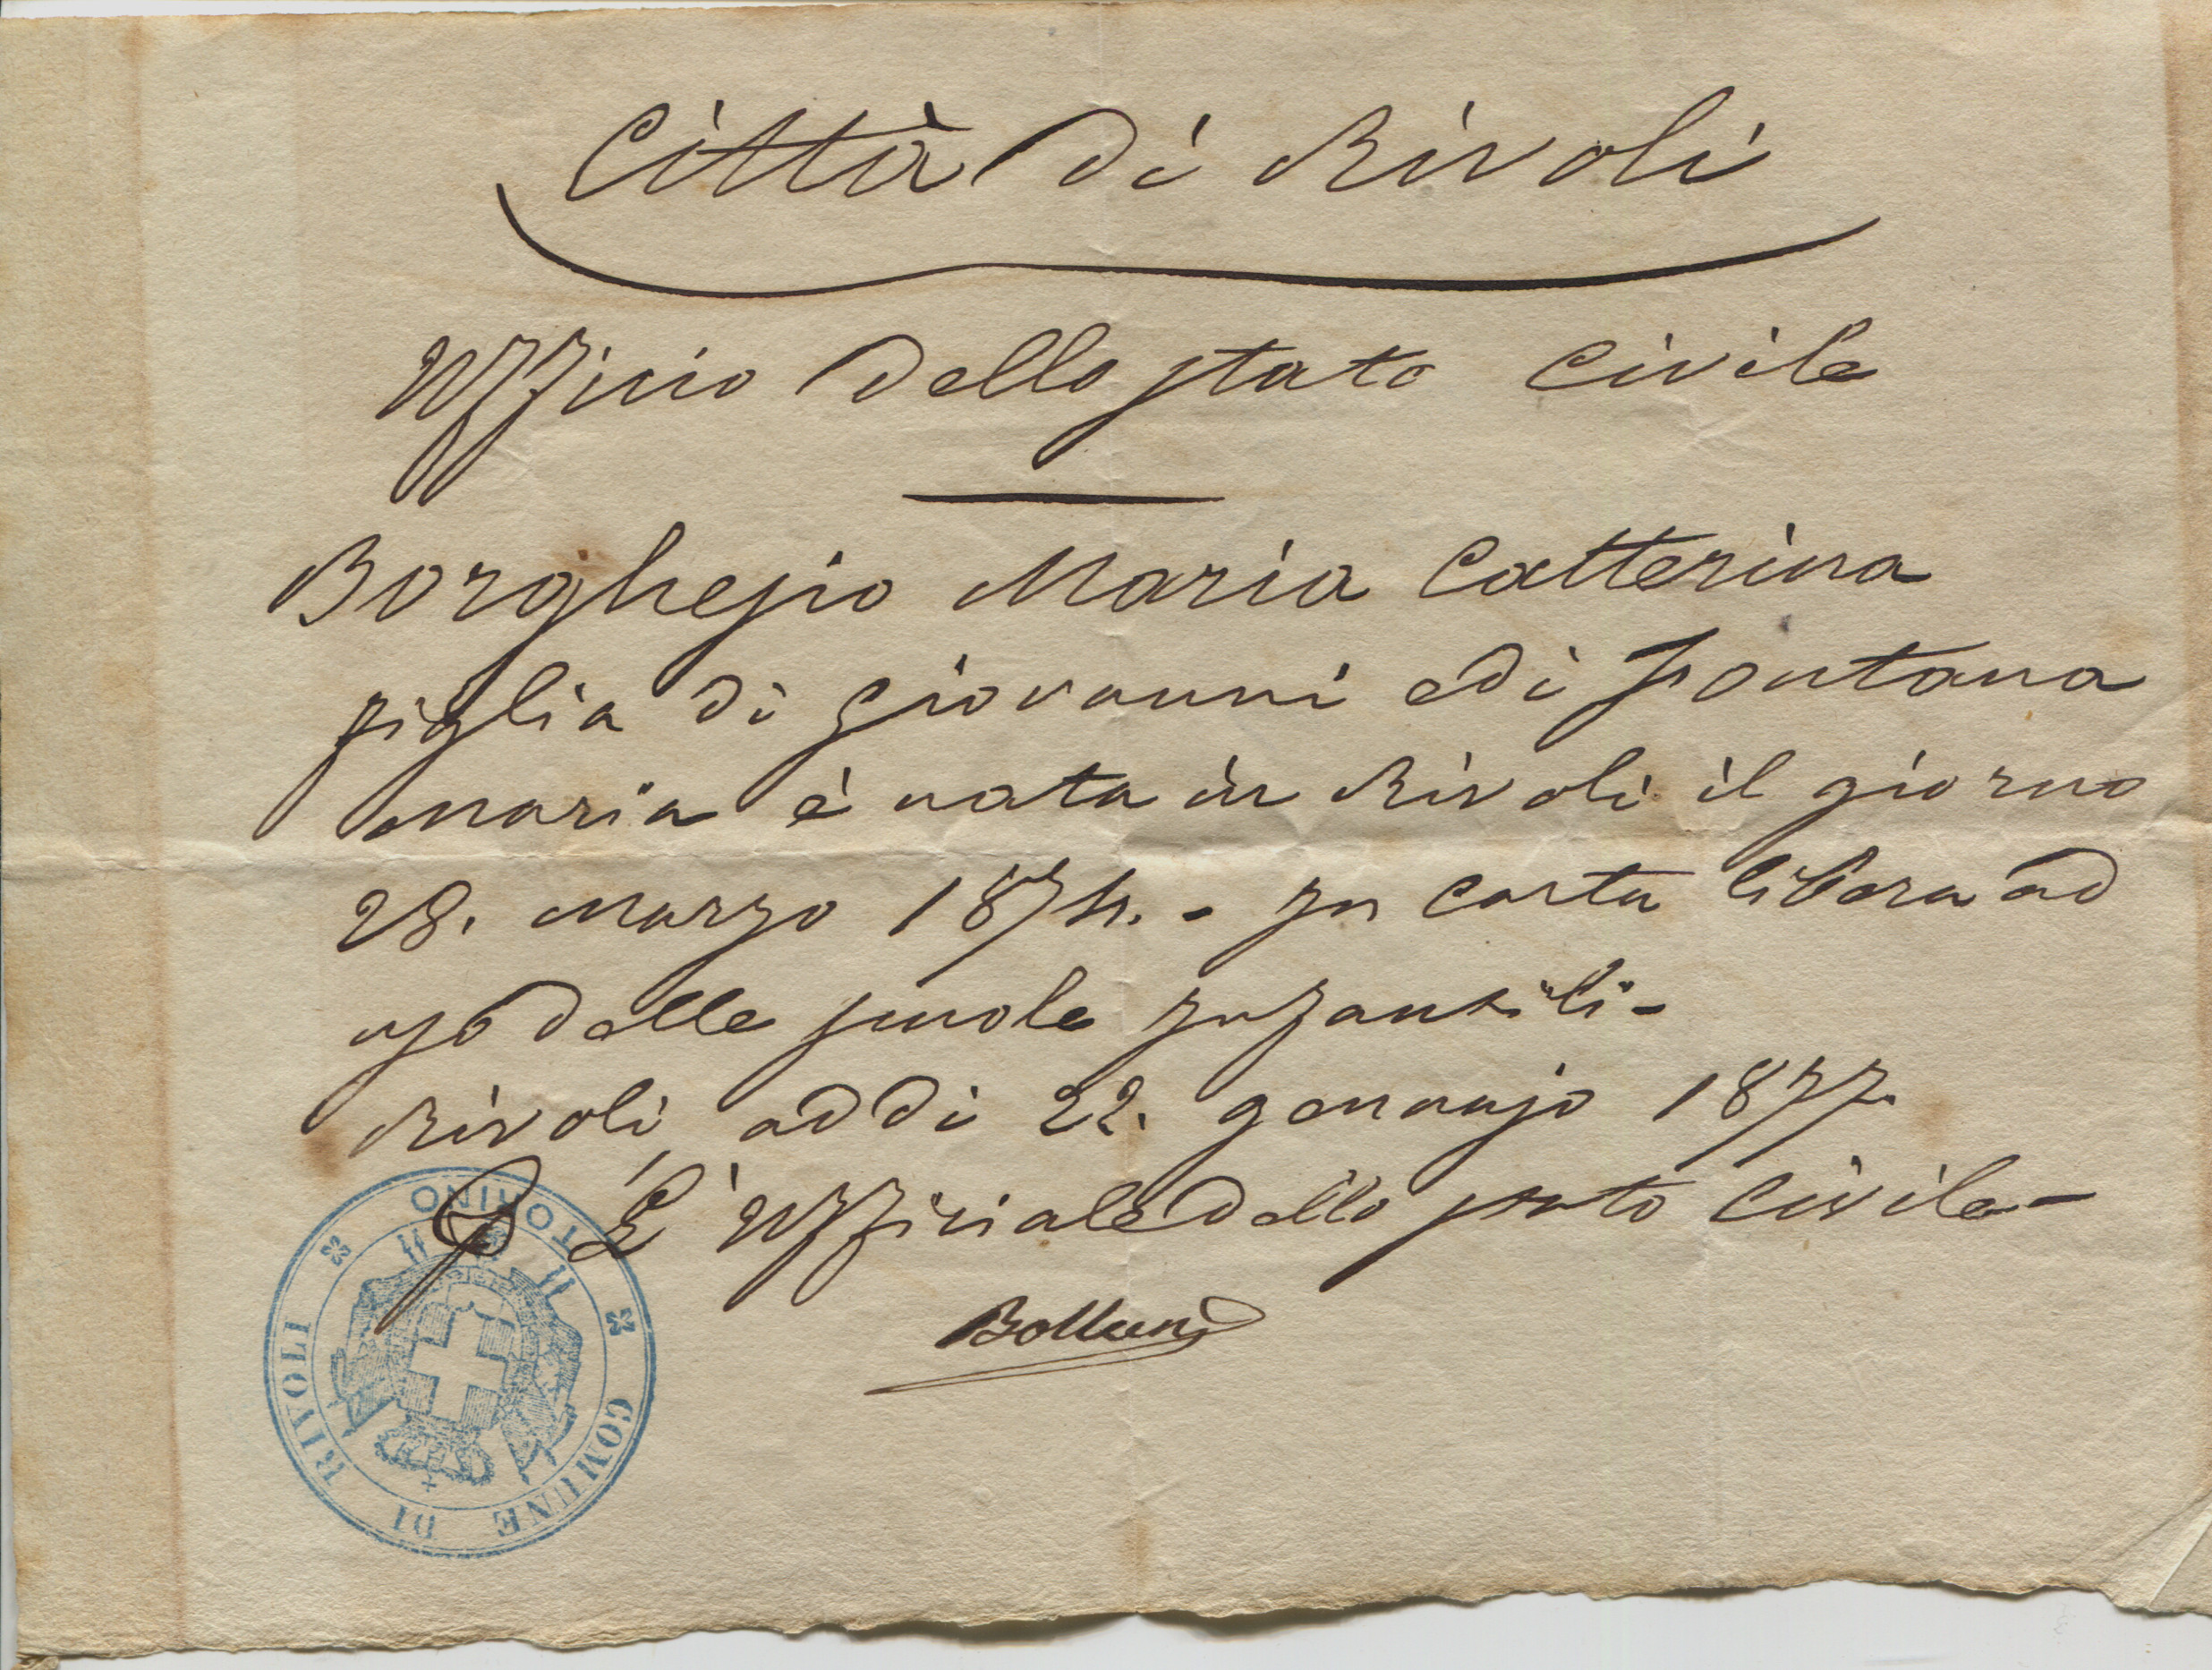 Città di Rivoli
Ufficio dello stato Civile
Borghesio Maria Catterina
figlia di Giovanni e di Fontana
Maria è nata in Rivoli il giorno
28. Marzo 1874. - In carta libera ad
uso delle scuole infantili -
Rivoli, addi 22. gennajo 1877.
L'Uffiziale dello stato Civile -
COMUNE DI RIVOLI
TORINO